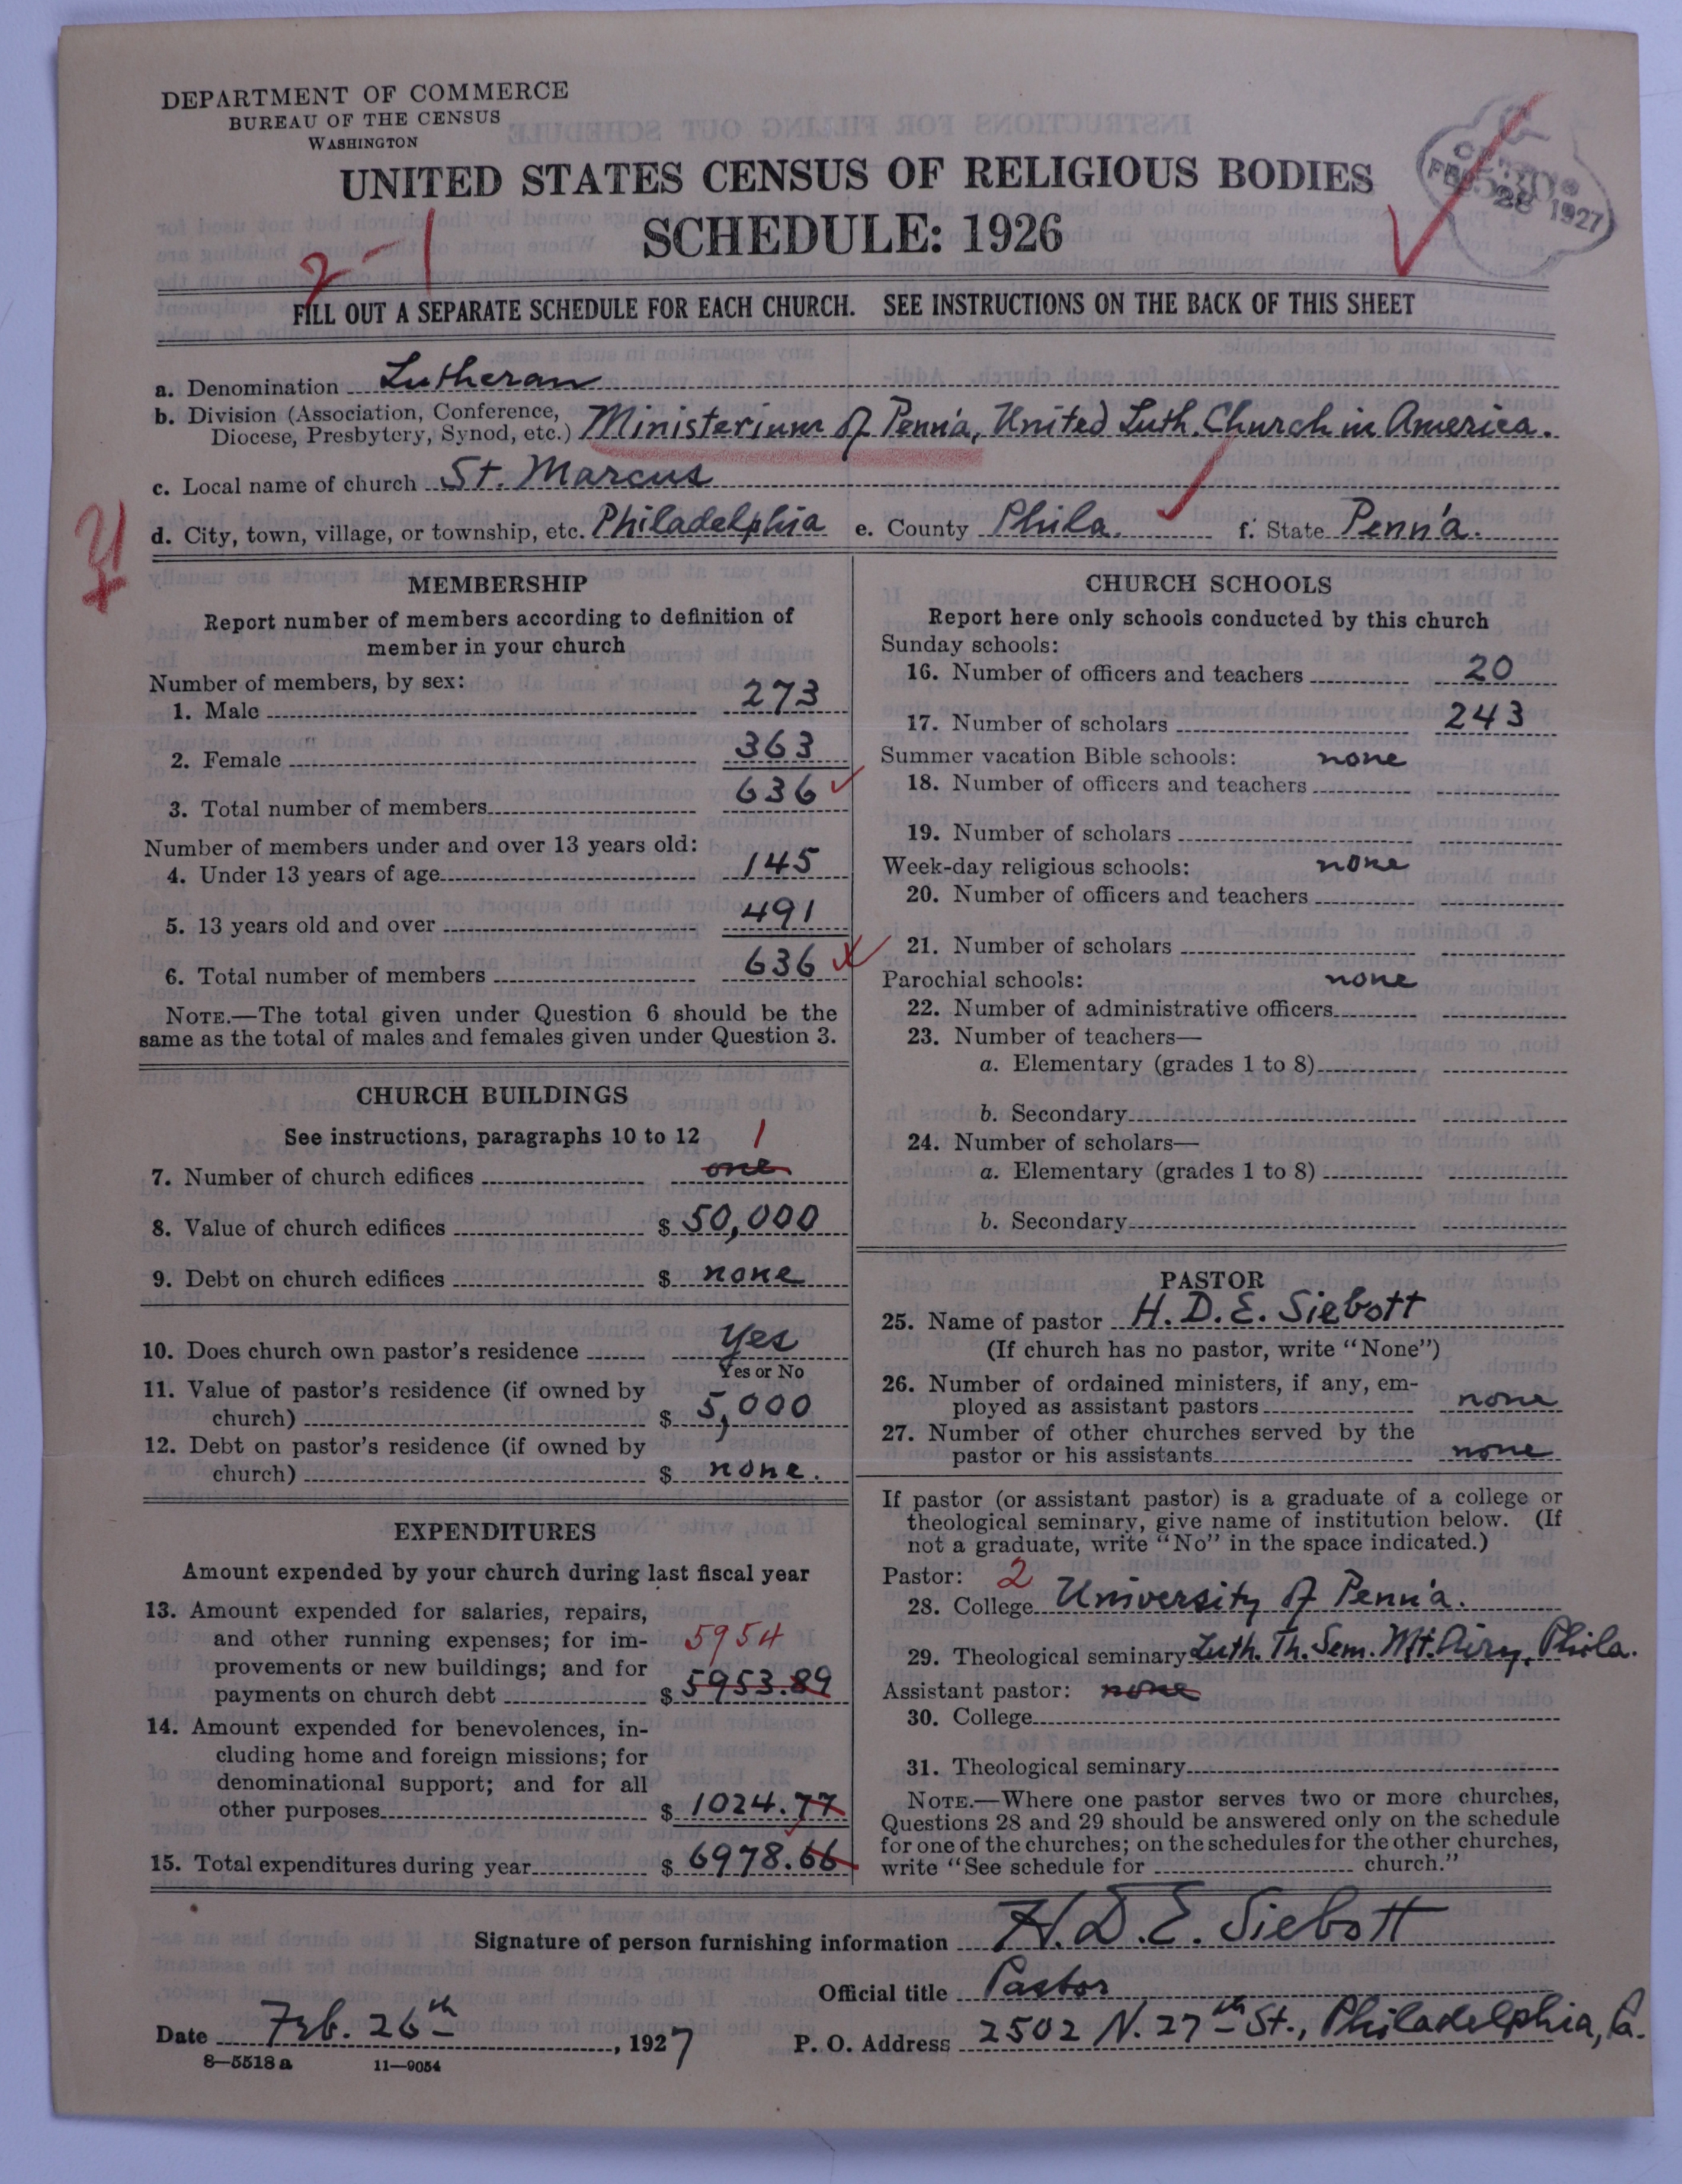 DEPARTMENT OF COMMERCE
BUREAU OF THE CENSUS
WASHINGTON
UNITED STATES CENSUS OF RELIGIOUS BODIES
SCHEDULE: 1926
FEB 28 1927
2-1
FILL OUT A SEPARATE SCHEDULE FOR EACH CHURCH. SEE INSTRUCTIONS ON THE BACK OF THIS SHEET
a. Denomination Lutheran
b. Division (Association, Conference, Diocese, Presbytery, Synod, etc.) Ministerium of Penn'a, United Luth. Church in America.
c. Local name of church St. Marcus
d. City, town, village, or township, etc. Philadelphia e. County Phila. f. State Penn'a.
MEMBERSHIP
Report number of members according to definition of
member in your church
Number of members, by sex:
1. Male 273
2. Female 363
3. Total number of members 636
Number of members under and over 13 years old:
4. Under 13 years of age 145
5. 13 years old and over 491
6. Total number of members 636
NOTE.—The total given under Question 6 should be the
same as the total of males and females given under Question 3.
CHURCH BUILDINGS
See instructions, paragraphs 10 to 12
1
7. Number of church edifices one
8. Value of church edifices $ 50,000
9. Debt on church edifices $ none
10. Does church own pastor's residence Yes
Yes or No
11. Value of pastor's residence (if owned by
church) $ 5,000
12. Debt on pastor's residence (if owned by
church) $ none.
EXPENDITURES
Amount expended by your church during last fiscal year
13. Amount expended for salaries, repairs,
and other running expenses; for im- 5954
provements or new buildings; and for
payments on church debt $ 5953.89
14. Amount expended for benevolences, in-
cluding home and foreign missions; for
denominational support; and for all
other purposes $ 1024.77
15. Total expenditures during year $ 6978.66
CHURCH SCHOOLS
Report here only schools conducted by this church
Sunday schools:
16. Number of officers and teachers 20
17. Number of scholars 243
Summer vacation Bible schools: none
18. Number of officers and teachers
19. Number of scholars
Week-day religious schools: none
20. Number of officers and teachers
21. Number of scholars
Parochial schools: none
22. Number of administrative officers
23. Number of teachers—
a. Elementary (grades 1 to 8)
b. Secondary
24. Number of scholars—
a. Elementary (grades 1 to 8)
b. Secondary
PASTOR
25. Name of pastor H. D. E. Siebott
(If church has no pastor, write "None")
26. Number of ordained ministers, if any, em-
ployed as assistant pastors none
27. Number of other churches served by the
pastor or his assistants none
If pastor (or assistant pastor) is a graduate of a college or
theological seminary, give name of institution below. (If
not a graduate, write "No" in the space indicated.)
Pastor: 2
28. College University of Penn'a.
29. Theological seminary Luth. Th. Sem. Mt. Airy, Phila.
Assistant pastor: none
30. College
31. Theological seminary
NOTE.—Where one pastor serves two or more churches,
Questions 28 and 29 should be answered only on the schedule
for one of the churches; on the schedules for the other churches,
write "See schedule for church."
Signature of person furnishing information H. D. E. Siebott
Official title Pastor
Date Feb. 26th, 1927 P. O. Address 2502 N. 27th St., Philadelphia, Pa.
8—5518 a 11—9054